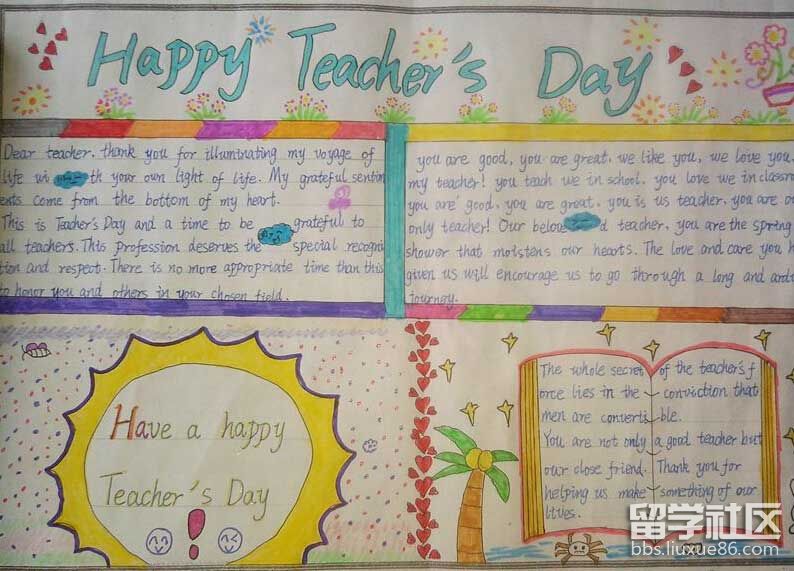 Happy Teacher's Day
Dear teacher, thank you for illuminating my voyage of
life wi th your own light of life. My grateful sentim
ents come from the bottom of my heart.
This is Teacher's Day and a time to be grateful to
all teachers. This profession deserves the special recogni
tion and respect. There is no more appropriate time than this
to honor you and others in your chosen field.
you are good, you are great, we like you, we love you.
my teacher! you teach we in school, you love we in classro
you are good, you are great, you is us teacher, you are o
only teacher! Our belove d teacher, you are the spring
shower that moistens our hearts. The love and care you h
given us will encourage us to go through a long and ard
journey.
Have a happy
Teacher's Day
!
The whole secret of the teacher's f
orce lies in the conviction that
men are converti ble.
You are not only a good teacher but
our close friend. Thank you for
helping us make something of our
lives.
留学社区
bbs.liuxue86.com